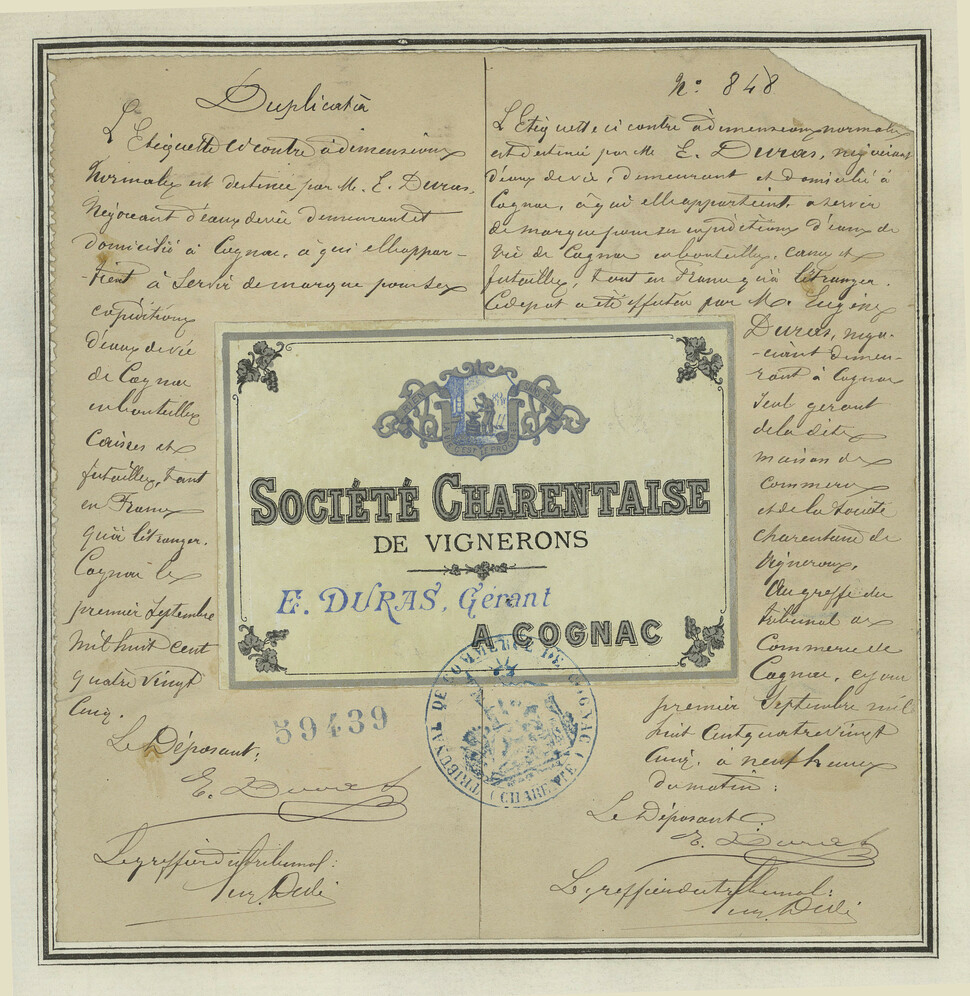 Duplicata
L'Etiquette ci contre à dimensions
Normales est destinée par M. E. Duras,
Négociant d'eaux de vie demeurant et
domicilié à Cognac, à qui elle appar-
-tient à servir de marque pour ses
expéditions
d'eaux de vie
de Cognac
en bouteilles
Caisses et
futailles, tant
en France
qu'à l'étranger.
Cognac le
premier Septembre
Mil huit cent
quatre vingt
Cinq.
Le Déposant:
E. Duras
Le greffier du tribunal:
59439
N° 848
L'Etiquette ci contre à dimensions normales
est destinée par M. E. Duras, négociant
d'eaux de vie, demeurant et domicilié à
Cognac, à qui elle appartient, à servir
de marque pour ses expéditions d'eaux de
vie de Cognac en bouteilles, caisses et
futailles, tant en France qu'à l'étranger.
Ce dépot a été effectué par M. Eugène
Duras, négo-
-ciant demeu-
rant à Cognac
Seul gérant
de la dite
maison de
commerce
et de la Société
charentaise de
Vignerons,
Au greffe du
tribunal de
Commerce de
Cognac, ce jour
premier Septembre mil
huit cent quatre vingt
Cinq, à neuf heures
du matin:
Le Déposant:
E. Duras
Le greffier du tribunal:
SOCIÉTÉ CHARENTAISE
DE VIGNERONS
E. DURAS, Gérant
A COGNAC
TRIBUNAL DE COMMERCE DE COGNAC
(CHARENTE)